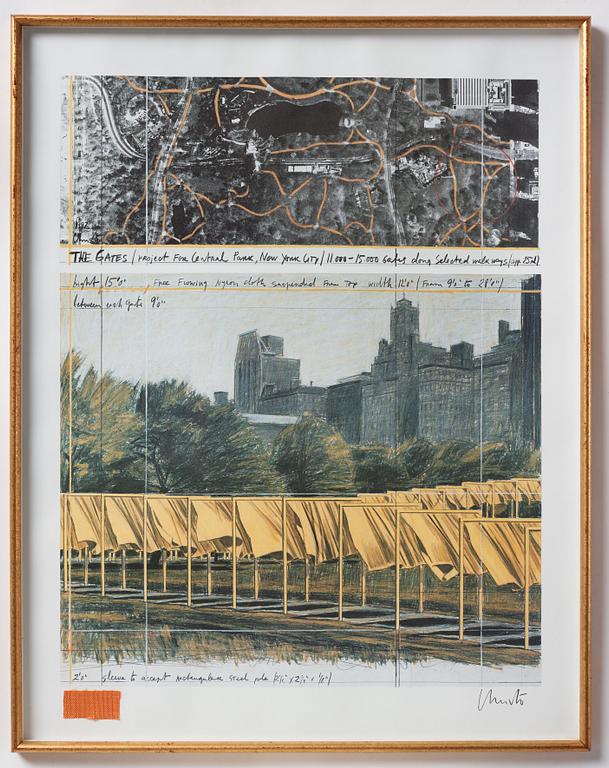 Christo
THE GATES / PROJECT FOR Central Park, New York City / 11 000 - 15 000 Gates along selected walk ways /
hight 15'0" Free Flowing Nylon cloth suspended From Top width 12'0" ( From 9'0" to 28'0" )
between each gate 9'0"
2'0" sleeve to accept rectangular steel pole
Christo